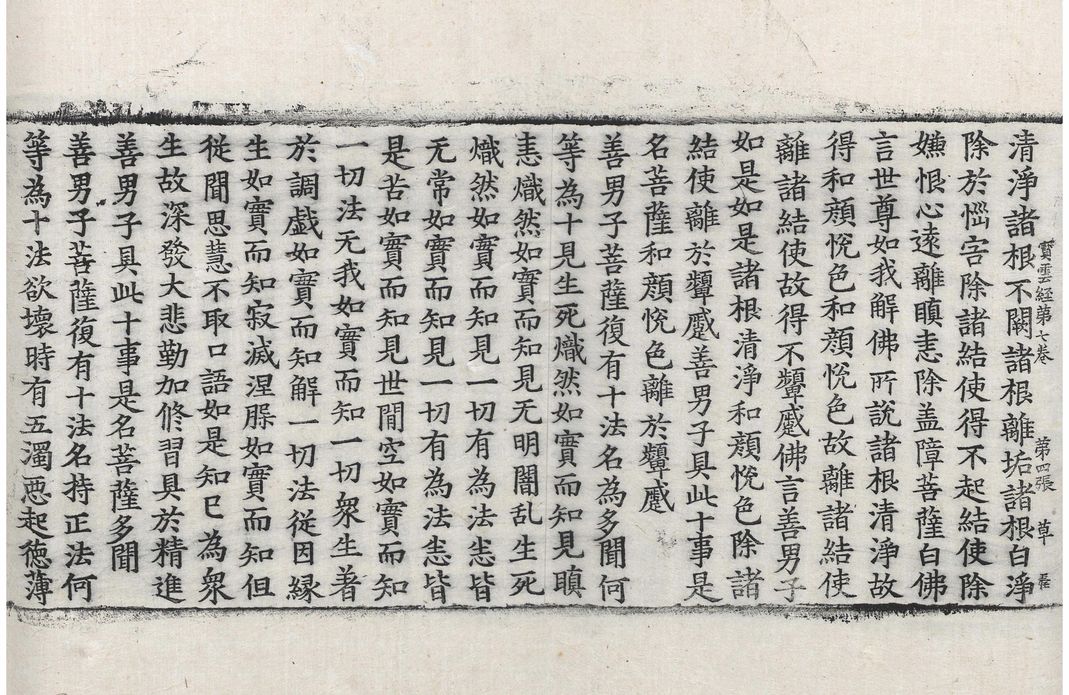 寳雲経第七卷　第四張　草
清淨諸根不闕諸根離垢諸根白淨
除於惱害除諸結使得不起結使除
嫌恨心遠離瞋恚除盖障菩薩白佛
言世尊如我解佛所說諸根清淨故
得和顔悅色和顔悅色故離諸結使
離諸結使故得不顰蹙佛言善男子
如是如是諸根清淨和顔悅色除諸
結使離於顰蹙善男子具此十事是
名菩薩和顔悅色離於顰蹙
善男子菩薩復有十法名為多聞何
等為十見生死熾然如實而知見瞋
恚熾然如實而知見无明闇乱生死
熾然如實而知見一切有為法恙皆
无常如實而知見一切有為法恙皆
是苦如實而知見世間空如實而知
一切法无我如實而知一切衆生著
於調戯如實而知解一切法従因縁
生如實而知寂滅涅槃如實而知但
従聞思慧不取口語如是知已為衆
生故深發大悲勤加修習具於精進
善男子具此十事是名菩薩多聞
善男子菩薩復有十法名持正法何
等為十法欲壞時有五濁惡起徳薄